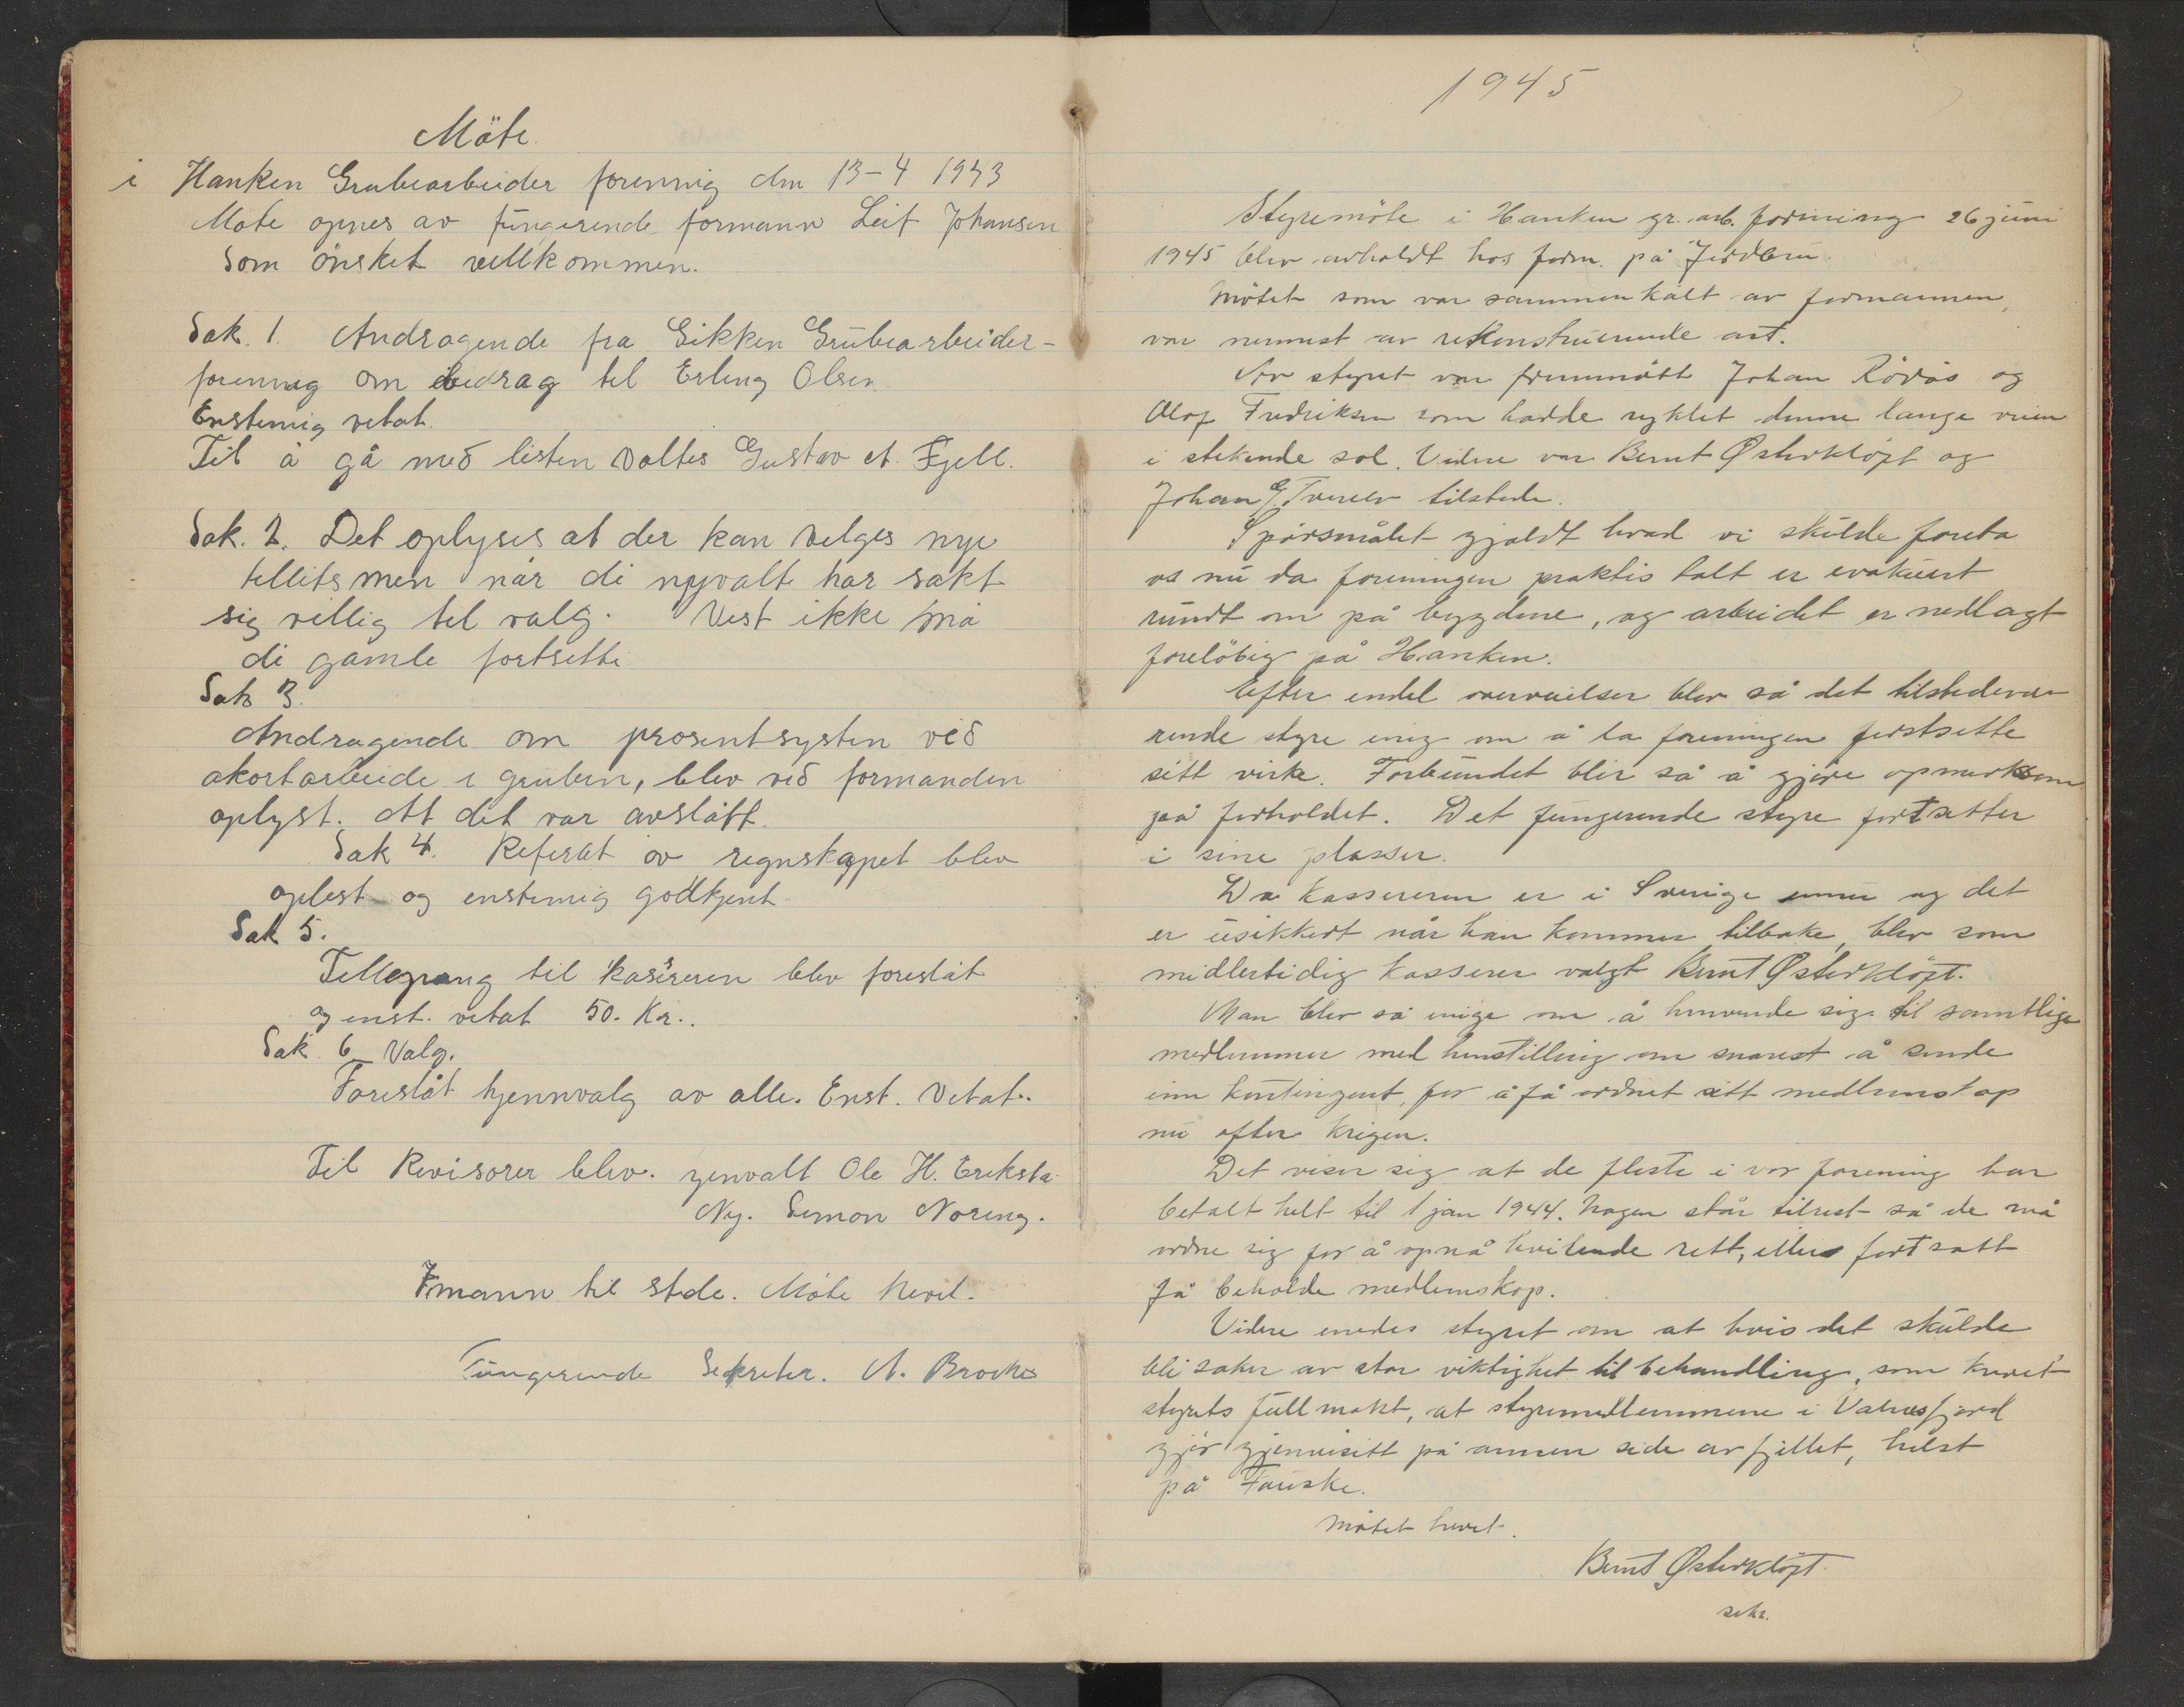 Möte.
i Hanken Grubearbeider forennig den 13-4 1943
Möte opnes av fungerende formann Leif Johansen
Som önsket vellkommen.
Sak. 1. Andragende fra Gikken Grubearbeider-
forennig om bedrag til Erling Olsen
Enstemig vetat.
Til å gå med listen valtes Gustav A. Fjell.
Sak. 2. Det oplyses at der kan velges nye
tellitsmen når di nyvalte har sakt
sig villig til valg. Vest ikke må
di gamle fortsette
Sak 3.
Andragende om prosentsysten ved
akortarbeide i gruben, blev ved formanden
oplyst. Att det var avslått.
Sak 4. Referat av regnskapet blev
oplest og enstemig godkjent.
Sak 5.
Tellegang til kasereren blev foreslåt
og enst. vetat 50. Kr..
Sak. 6 Valg.
Foreslåt hjennvalg av alle. Enst. Vetat.
Til Revisorer blev. genvalt Ole H. Ereksta
Ny. Semon Noreng.
7 mann til stede. Möte hevet.
Fungerende Sekreter. A. Brockes
1945
Styremöte i Hanken gr. arb. forening 26 juni
1945 blev avholdt hos form. på Jordbru.
Mötet som var sammenkalt av formannen,
var nermest av rekonstruerende art.
Av styret var fremmött Johan Rödås og
Olaf Fredriksen som hadde syklet denne lange veien
i stekende sol. Videre var Bernt Østerkløft og
Johan G. Tverelv tilstede.
Spörsmålet gjaldt hvad vi skulde foreta
os nu da foreningen praktis talt er evakuert
rundt om på bygdene, og arbeidet er nedlagt
forelöbig på Hanken.
Efter endel overveielser blev så det tilstedevæ-
rende styre enig om å la foreningen fortsette
sitt virke. Forbundet blir så å gjöre opmerksom
på forholdet. Det fungerende styre fortsetter
i sine plasser.
Da kassereren er i Sverige ennu og det
er usikkert når han kommer tilbake, blev som
midlertidig kasserer valgt Bernt Østerkløft.
Man blev så enige om å henvende sig til samtlige
medlemmer med henstilling om snarest å sende
inn kontingent, for å få ordnet sitt medlemskap
nu efter krigen.
Det viser sig at de fleste i vor forening har
betalt helt til 1 jan 1944. Nogen står tilrest så de må
ordne sig for å opnå hvilende rett, eller fortsatt
få beholde medlemskap.
Videre enedes styret om at hvis det skulde
bli saker av stor viktighet til behandling, som krevet
styrets fullmakt, at styremedlemmene i Valnesfjord
gjör gjenvisitt på annen side av fjellet, helst
på Fauske.
Mötet hevet.
Bernt Østerkløft.
sekr.